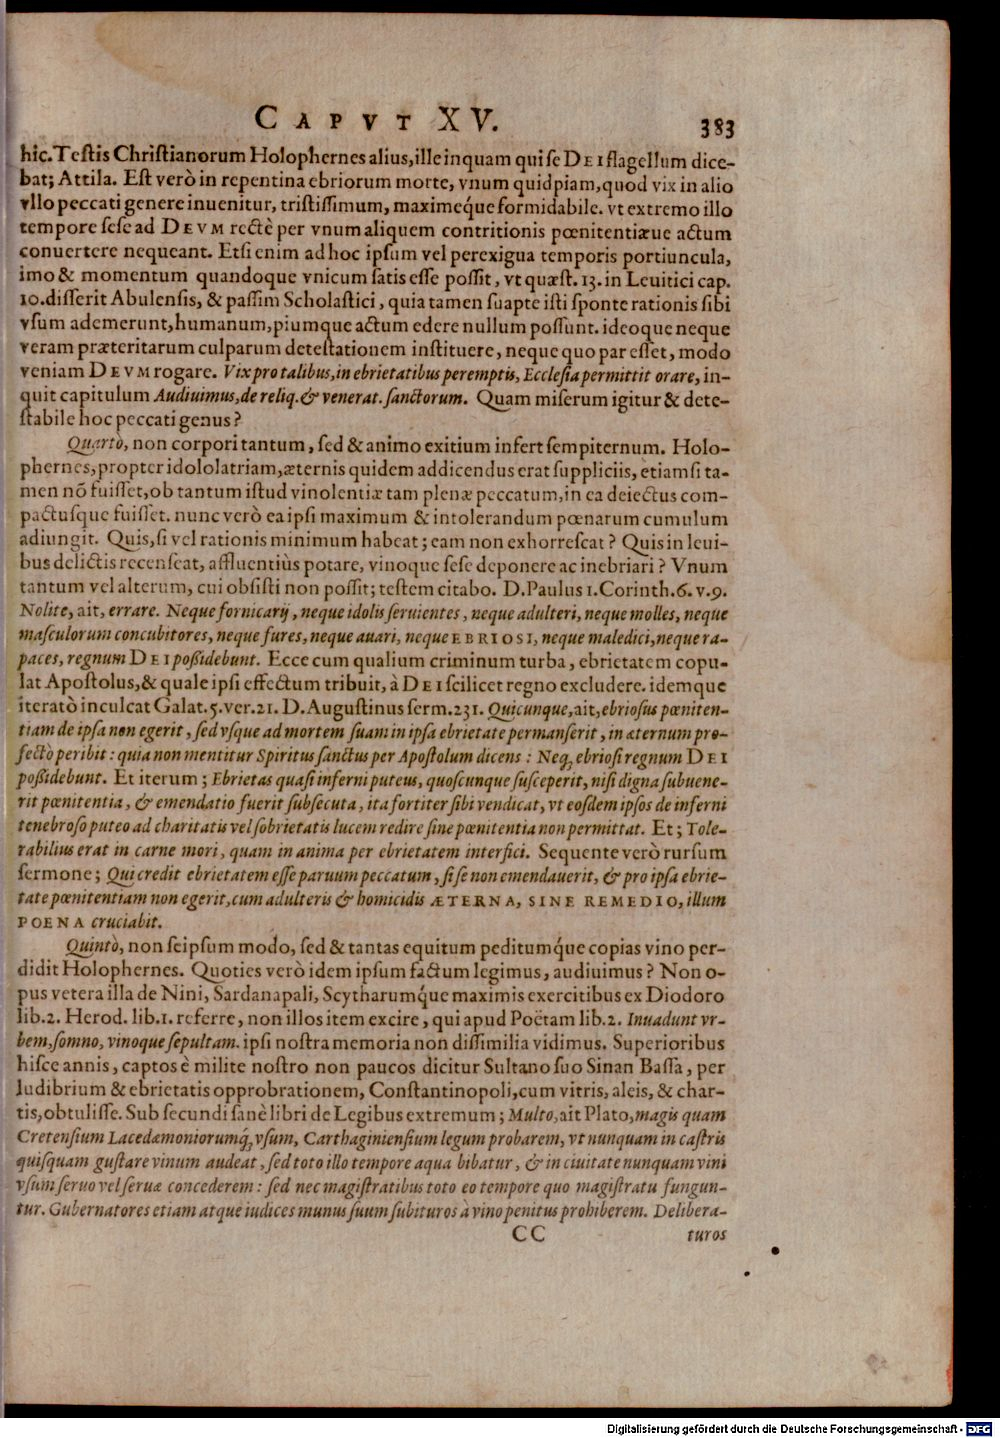 CAPVT XV. 383
hic. Testis Christianorum Holophernes alius, ille inquam qui se DEI flagellum dice-
bat; Attila. Est verò in repentina ebriorum morte, vnum quidpiam, quod vix in alio
vllo peccati genere inuenitur, tristissimum, maximeq́ue formidabile. vt extremo illo
tempore sese ad DEVM rectè per vnum aliquem contritionis pœnitentiæue actum
conuertere nequeant. Etsi enim ad hoc ipsum vel perexigua temporis portiuncula,
imo & momentum quandoque vnicum satis esse possit, vt quæst. 13. in Leuitici cap.
10. disserit Abulensis, & passim Scholastici, quia tamen suapte isti sponte rationis sibi
vsum ademerunt, humanum, piumque actum edere nullum possunt. ideoque neque
veram præteritarum culparum detestationem instituere, neque quo par esset, modo
veniam DEVM rogare. Vix pro talibus, in ebrietatibus peremptis, Ecclesia permittit orare, in-
quit capitulum Audiuimus, de reliq. & venerat. sanctorum. Quam miserum igitur & dete-
stabile hoc peccati genus?
Quartò, non corpori tantum, sed & animo exitium infert sempiternum. Holo-
phernes, propter idololatriam, æternis quidem addicendus erat suppliciis, etiamsi ta-
men nõ fuisset, ob tantum istud vinolentiæ tam plenæ peccatum, in ea deiectus com-
pactusque fuisset. nunc verò ea ipsi maximum & intolerandum pœnarum cumulum
adiungit. Quis, si vel rationis minimum habeat; eam non exhorrescat? Quis in leui-
bus delictis recenseat, affluentiùs potare, vinoque sese deponere ac inebriari? Vnum
tantum vel alterum, cui obsisti non possit; testem citabo. D. Paulus 1. Corinth. 6. v. 9.
Nolite, ait, errare. Neque fornicarij, neque idolis seruientes, neque adulteri, neque molles, neque
masculorum concubitores, neque fures, neque auari, neque EBRIOSI, neque maledici, neque ra-
paces, regnum DEI poßidebunt. Ecce cum qualium criminum turba, ebrietatem copu-
lat Apostolus, & quale ipsi effectum tribuit, à DEI scilicet regno excludere. idemque
iteratò inculcat Galat. 5. ver. 21. D. Augustinus serm. 231. Quicunque, ait, ebriosus pœniten-
tiam de ipsa non egerit, sed vsque ad mortem suam in ipsa ebrietate permanserit, in æternum pro-
fectò peribit: quia non mentitur Spiritus sanctus per Apostolum dicens: Neq; ebriosi regnum DEI
poßidebunt. Et iterum; Ebrietas quasi inferni puteus, quoscunque susceperit, nisi digna subuene-
rit pœnitentia, & emendatio fuerit subsecuta, ita fortiter sibi vendicat, vt eosdem ipsos de inferni
tenebroso puteo ad charitatis vel sobrietatis lucem redire sine pœnitentia non permittat. Et; Tole-
rabilius erat in carne mori, quam in anima per ebrietatem interfici. Sequente verò rursum
sermone; Qui credit ebrietatem esse paruum peccatum, si se non emendauerit, & pro ipsa ebrie-
tate pœnitentiam non egerit, cum adulteris & homicidis ÆTERNA, SINE REMEDIO, illum
POENA cruciabit.
Quintò, non seipsum modo, sed & tantas equitum peditumq́ue copias vino per-
didit Holophernes. Quoties verò idem ipsum factum legimus, audiuimus? Non o-
pus vetera illa de Nini, Sardanapali, Scytharumq́ue maximis exercitibus ex Diodoro
lib. 2. Herod. lib. 1. referre, non illos item excire, qui apud Poëtam lib. 2. Inuadunt vr-
bem, somno, vinoque sepultam. ipsi nostra memoria non dissimilia vidimus. Superioribus
hisce annis, captos è milite nostro non paucos dicitur Sultano suo Sinan Bassa, per
ludibrium & ebrietatis opprobrationem, Constantinopoli, cum vitris, aleis, & char-
tis, obtulisse. Sub secundi sanè libri de Legibus extremum; Multo, ait Plato, magis quam
Cretensium Lacedæmoniorumq́; vsum, Carthaginiensium legum probarem, vt nunquam in castris
quisquam gustare vinum audeat, sed toto illo tempore aqua bibatur, & in ciuitate nunquam vini
vsum seruo vel seruæ concederem: sed nec magistratibus toto eo tempore quo magistratu fungun-
tur. Gubernatores etiam atque iudices munus suum subituros à vino penitus prohiberem. Delibera-
CC turos
Digitalisierung gefördert durch die Deutsche Forschungsgemeinschaft - DFG